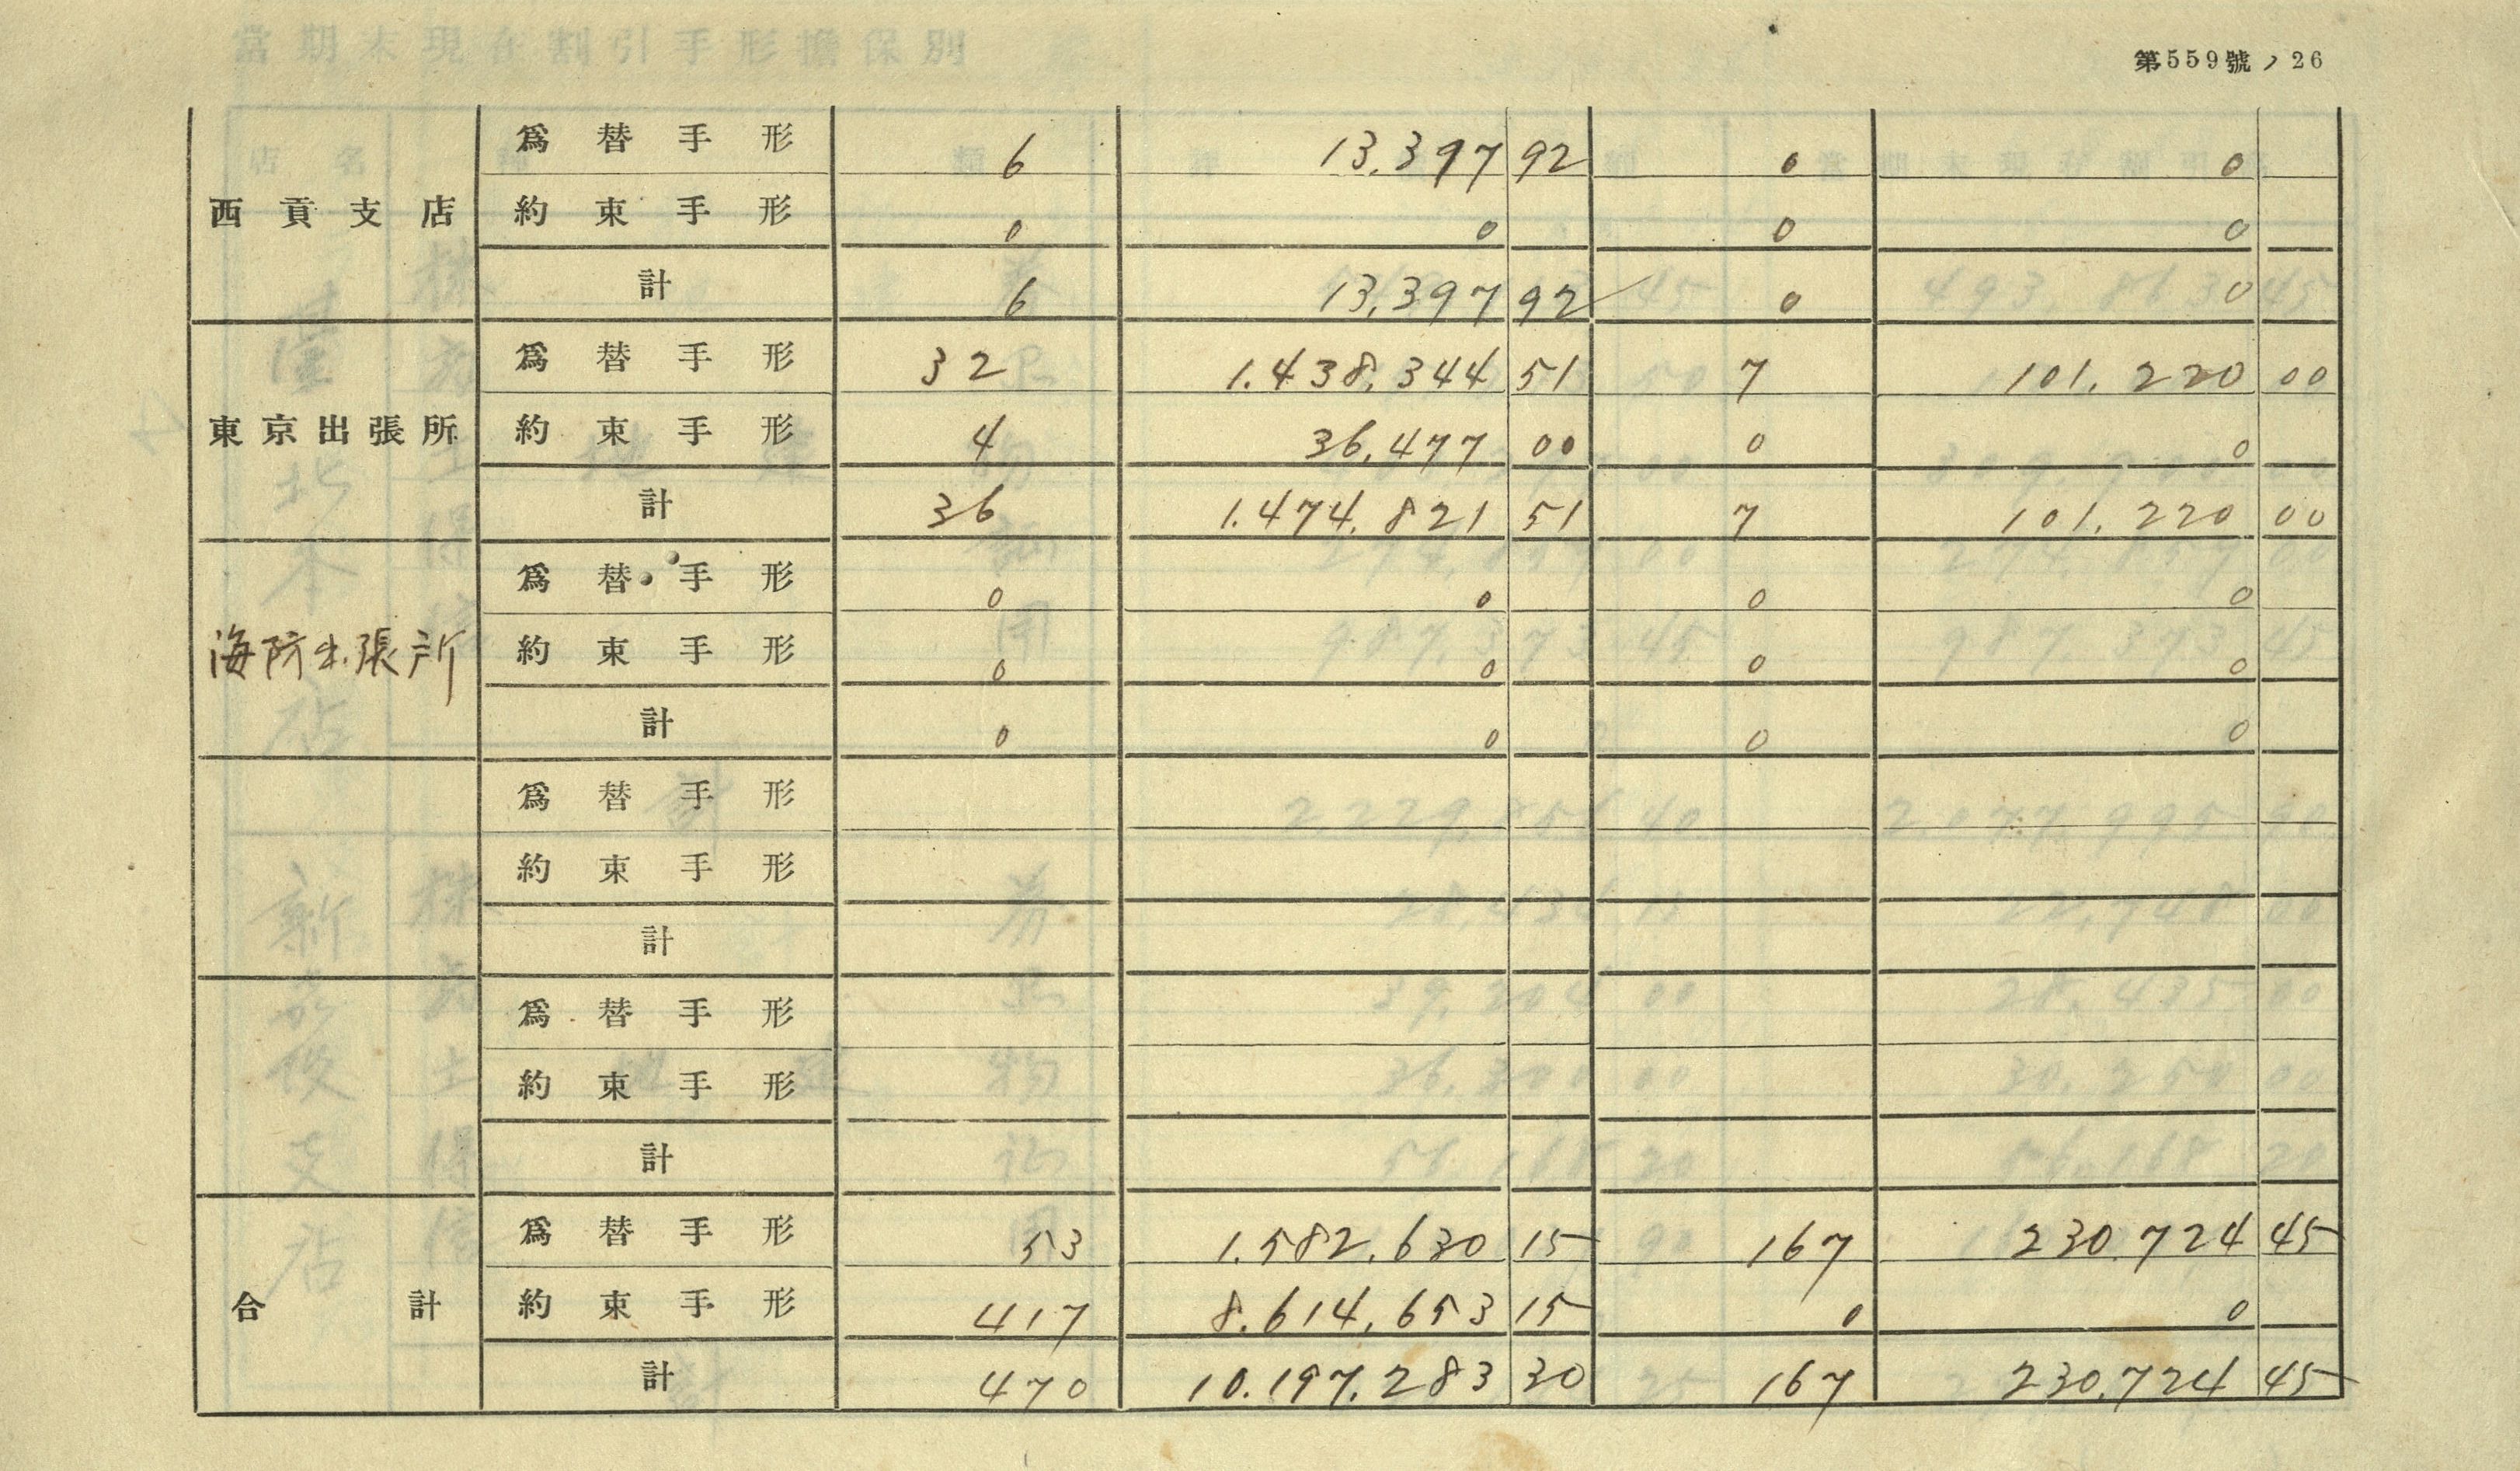 第559號ノ26
爲替手形 6 13,397 92 0 0
西貢支店 約束手形 0 0 0 0
計 6 13,397 92 0 0
爲替手形 32 1.438,344 51 7 101.220 00
東京出張所 約束手形 4 36,477 00 0 0
計 36 1.474.821 51 7 101.220 00
爲替手形 0 0 0 0
海防出張所 約束手形 0 0 0 0
計 0 0 0 0
爲替手形
約束手形
計
爲替手形
約束手形
計
爲替手形 53 1.582.630 15 167 230.724 45
合計 約束手形 417 8.614,653 15 0 0
計 470 10.197.283 30 167 230.724 45